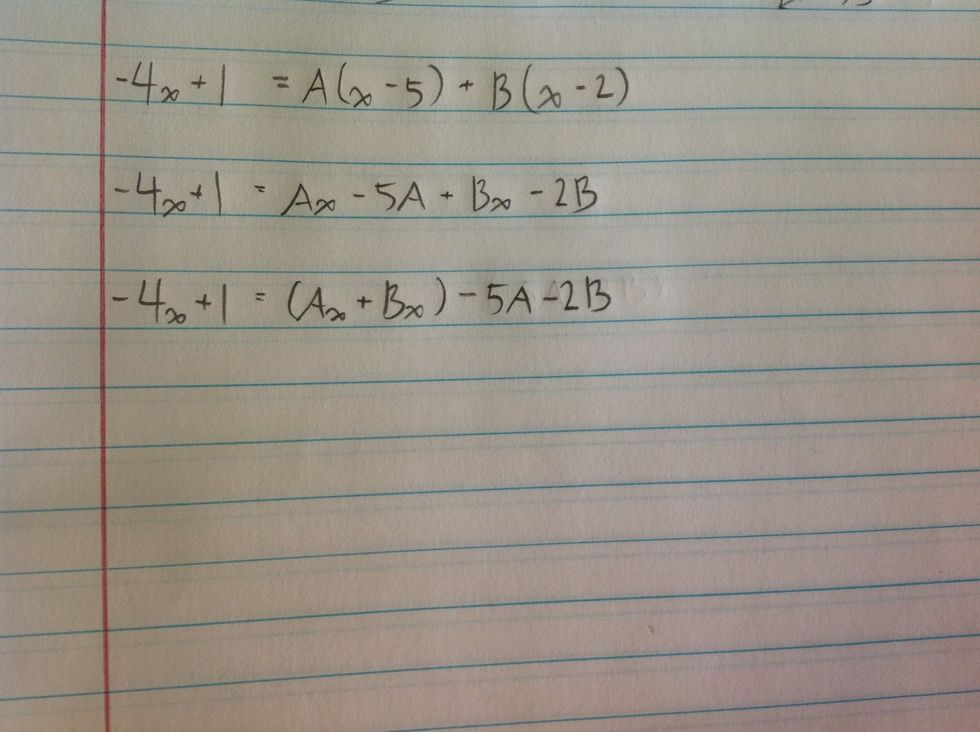 -4x+1 = A(x-5) + B(x-2)
-4x+1 = Ax - 5A + Bx - 2B
-4x+1 = (Ax + Bx) - 5A - 2B